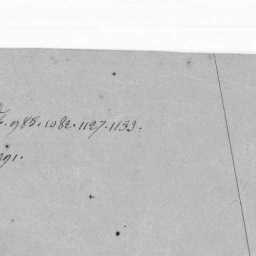 985. 1082. 1127. 1133.
291.